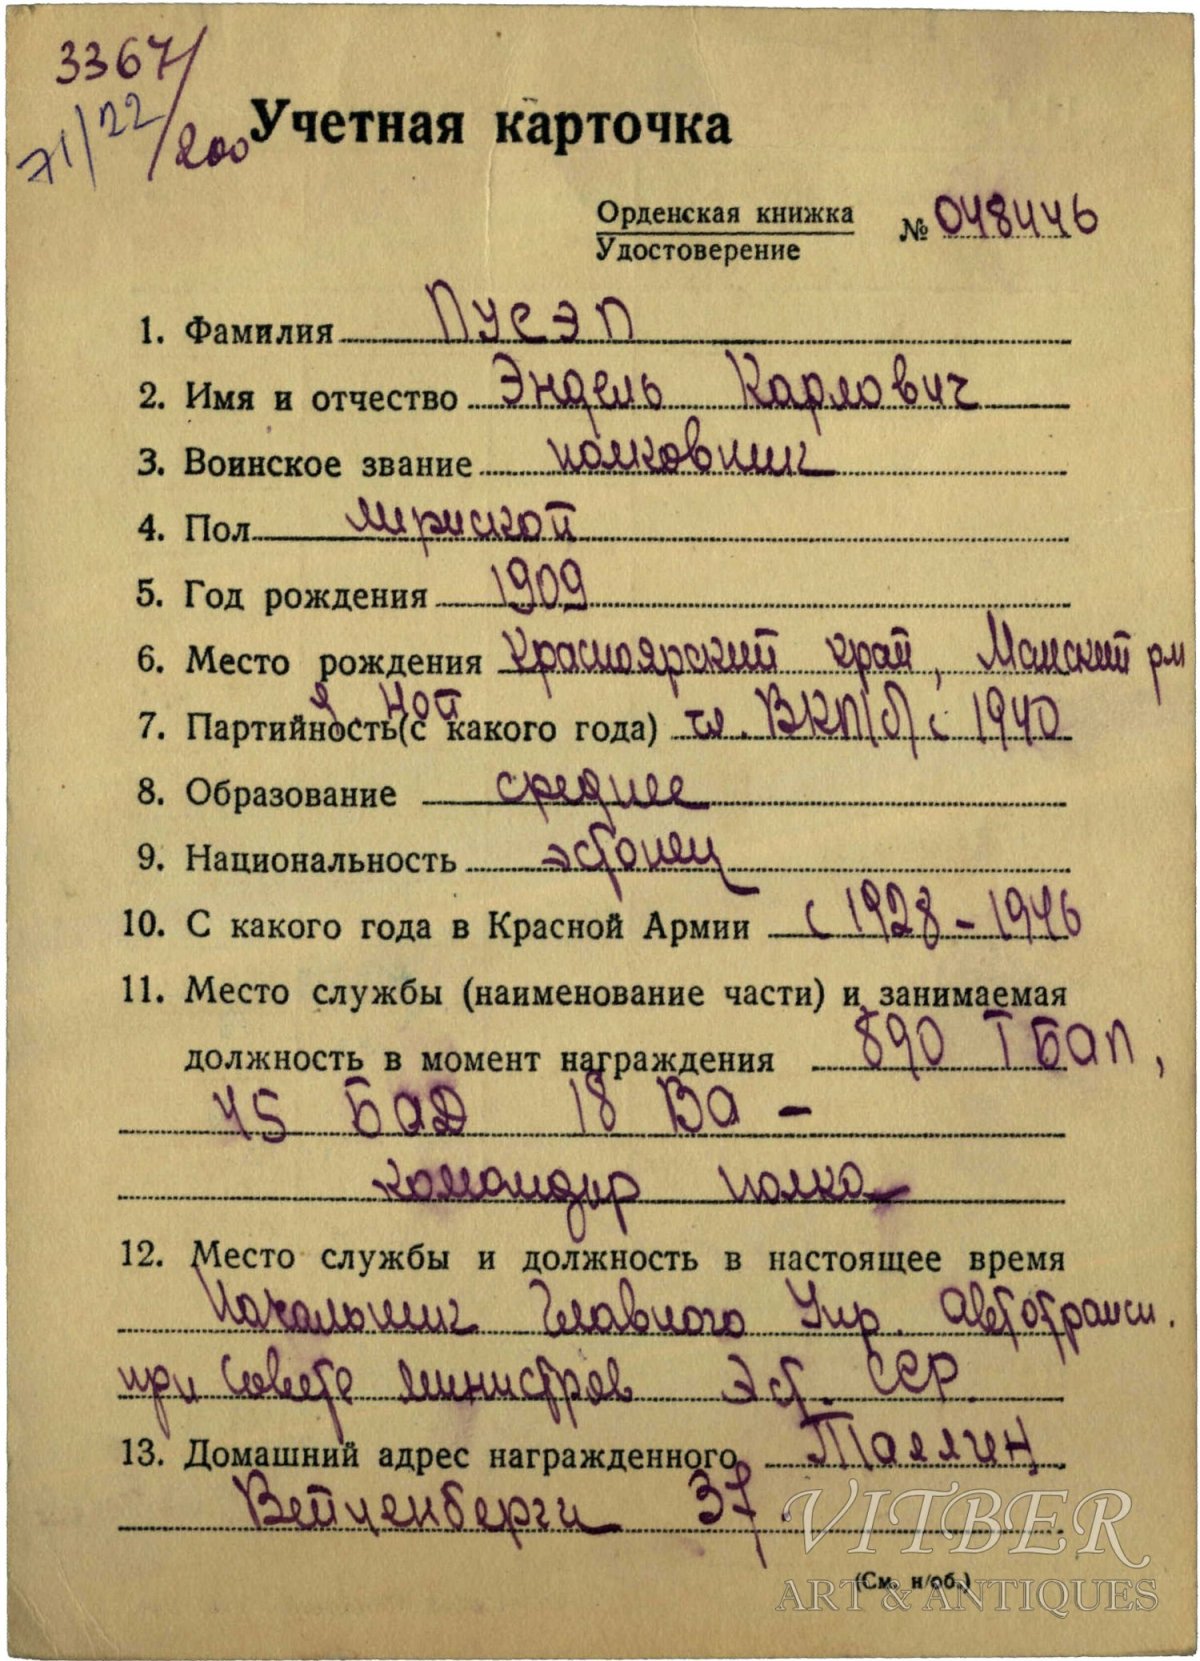 3367/
71/22/200
Учетная карточка
Орденская книжка
Удостоверение
№ 048446
1. Фамилия Пусэп
2. Имя и отчество Эндель Карлович
3. Воинское звание полковник
4. Пол мужской
5. Год рождения 1909
6. Место рождения Красноярский край, Манский р-н
7. Партийность (с какого года) чл. ВКП(б) с 1940
8. Образование среднее
9. Национальность эстонец
10. С какого года в Красной Армии с 1928 - 1946
11. Место службы (наименование части) и занимаемая
должность в момент награждения 890 ТБАП,
45 БАД 18 ВА -
командир полка
12. Место службы и должность в настоящее время
Начальник Главного Упр. Автотрансп.
при Совете министров Эст. ССР.
13. Домашний адрес награжденного Таллин,
Вейценберги 37.
(См. н/об.)
VITBER
ART & ANTIQUES